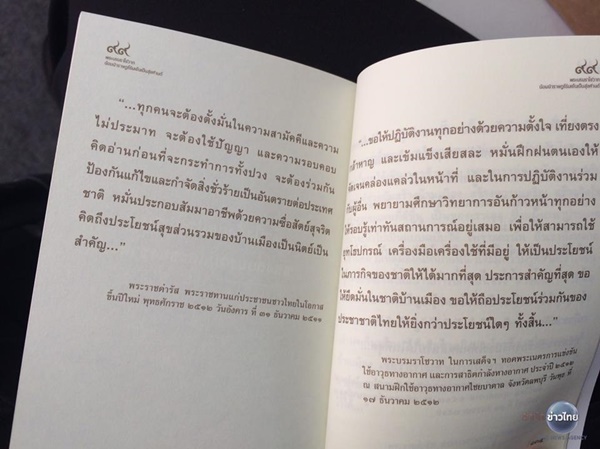 ๙๙
พระบรมราโชวาท
"...ทุกคนจะต้องตั้งมั่นในความสามัคคีและความ
ไม่ประมาท จะต้องใช้ปัญญา และความรอบคอบ
คิดอ่านก่อนที่จะกระทำการทั้งปวง จะต้องร่วมกัน
ป้องกันแก้ไขและกำจัดสิ่งชั่วร้ายเป็นอันตรายต่อประเทศ
ชาติ หมั่นประกอบสัมมาอาชีพด้วยความซื่อสัตย์สุจริต
คิดถึงประโยชน์สุขส่วนรวมของบ้านเมืองเป็นนิตย์เป็น
สำคัญ..."
พระราชดำรัส พระราชทานแก่ประชาชนชาวไทยในโอกาส
ขึ้นปีใหม่ พุทธศักราช ๒๕๑๒ วันอังคาร ที่ ๓๑ ธันวาคม ๒๕๑๑
๙๙
"...ขอให้ปฏิบัติงานทุกอย่างด้วยความตั้งใจ เที่ยงตรง
กล้าหาญ และเข้มแข็งเสียสละ หมั่นฝึกฝนตนเองให้
คล่องแคล่วในหน้าที่ และในการปฏิบัติงานร่วม
กับผู้อื่น พยายามศึกษาวิทยาการอันก้าวหน้าทุกอย่าง
ให้รอบรู้เท่าทันสถานการณ์อยู่เสมอ เพื่อให้สามารถใช้
ยุทโธปกรณ์ เครื่องมือเครื่องใช้ที่มีอยู่ ให้เป็นประโยชน์
ในภารกิจของชาติให้ได้มากที่สุด ประการสำคัญที่สุด ขอ
ให้ยึดมั่นในชาติบ้านเมือง ขอให้ถือประโยชน์ร่วมกันของ
ประชาชาติไทยให้ยิ่งกว่าประโยชน์ใดๆ ทั้งสิ้น..."
พระบรมราโชวาท ในการเสด็จฯ ทอดพระเนตรการแข่งขัน
ใช้อาวุธทางอากาศ และการสาธิตกำลังทางอากาศ ประจำปี ๒๕๑๒
ณ สนามฝึกใช้อาวุธทางอากาศชัยบาดาล จังหวัดลพบุรี วันพุธ ที่
๑๗ ธันวาคม ๒๕๑๒
ข่าวไทย